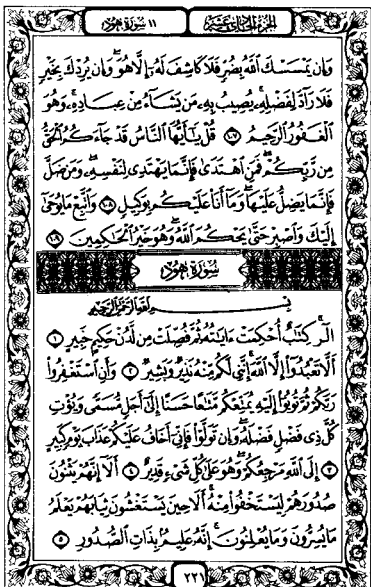 الجزء الحادي عشر ١١ سورة هود
وَإِن يَمْسَسْكَ ٱللَّهُ بِضُرٍّ فَلَا كَاشِفَ لَهُۥٓ إِلَّا هُوَ ۖ وَإِن يُرِدْكَ بِخَيْرٍ
فَلَا رَآدَّ لِفَضْلِهِۦ ۚ يُصِيبُ بِهِۦ مَن يَشَآءُ مِنْ عِبَادِهِۦ ۚ وَهُوَ
ٱلْغَفُورُ ٱلرَّحِيمُ ١٠٧ قُلْ يَٰٓأَيُّهَا ٱلنَّاسُ قَدْ جَآءَكُمُ ٱلْحَقُّ
مِن رَّبِّكُمْ ۖ فَمَنِ ٱهْتَدَىٰ فَإِنَّمَا يَهْتَدِى لِنَفْسِهِۦ ۖ وَمَن ضَلَّ
فَإِنَّمَا يَضِلُّ عَلَيْهَا ۖ وَمَآ أَنَا۠ عَلَيْكُم بِوَكِيلٍ ١٠٨ وَٱتَّبِعْ مَا يُوحَىٰٓ
إِلَيْكَ وَٱصْبِرْ حَتَّىٰ يَحْكُمَ ٱللَّهُ ۚ وَهُوَ خَيْرُ ٱلْحَٰكِمِينَ ١٠٩
سُورَةُ هُودٍ
بِسْمِ ٱللَّهِ ٱلرَّحْمَٰنِ ٱلرَّحِيمِ
الٓر ۚ كِتَٰبٌ أُحْكِمَتْ ءَايَٰتُهُۥ ثُمَّ فُصِّلَتْ مِن لَّدُنْ حَكِيمٍ خَبِيرٍ ١
أَلَّا تَعْبُدُوٓا۟ إِلَّا ٱللَّهَ ۚ إِنَّنِى لَكُم مِّنْهُ نَذِيرٌ وَبَشِيرٌ ٢ وَأَنِ ٱسْتَغْفِرُوا۟
رَبَّكُمْ ثُمَّ تُوبُوٓا۟ إِلَيْهِ يُمَتِّعْكُم مَّتَٰعًا حَسَنًا إِلَىٰٓ أَجَلٍ مُّسَمًّى وَيُؤْتِ
كُلَّ ذِى فَضْلٍ فَضْلَهُۥ ۖ وَإِن تَوَلَّوْا۟ فَإِنِّىٓ أَخَافُ عَلَيْكُمْ عَذَابَ يَوْمٍ كَبِيرٍ
٣ إِلَى ٱللَّهِ مَرْجِعُكُمْ ۖ وَهُوَ عَلَىٰ كُلِّ شَىْءٍ قَدِيرٌ ٤ أَلَآ إِنَّهُمْ يَثْنُونَ
صُدُورَهُمْ لِيَسْتَخْفُوا۟ مِنْهُ ۚ أَلَا حِينَ يَسْتَغْشُونَ ثِيَابَهُمْ يَعْلَمُ
مَا يُسِرُّونَ وَمَا يُعْلِنُونَ ۚ إِنَّهُۥ عَلِيمٌۢ بِذَاتِ ٱلصُّدُورِ ٥
٢٢١